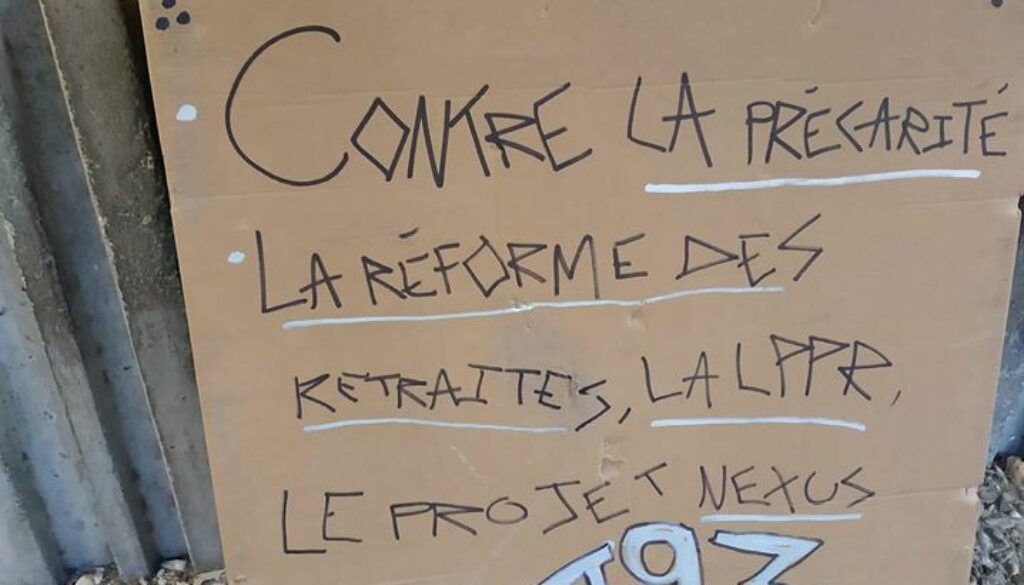 CONTRE LA PRÉCARITÉ
LA RÉFORME DES
RETRAITES, LA LPPR,
LE PROJET NEXUS